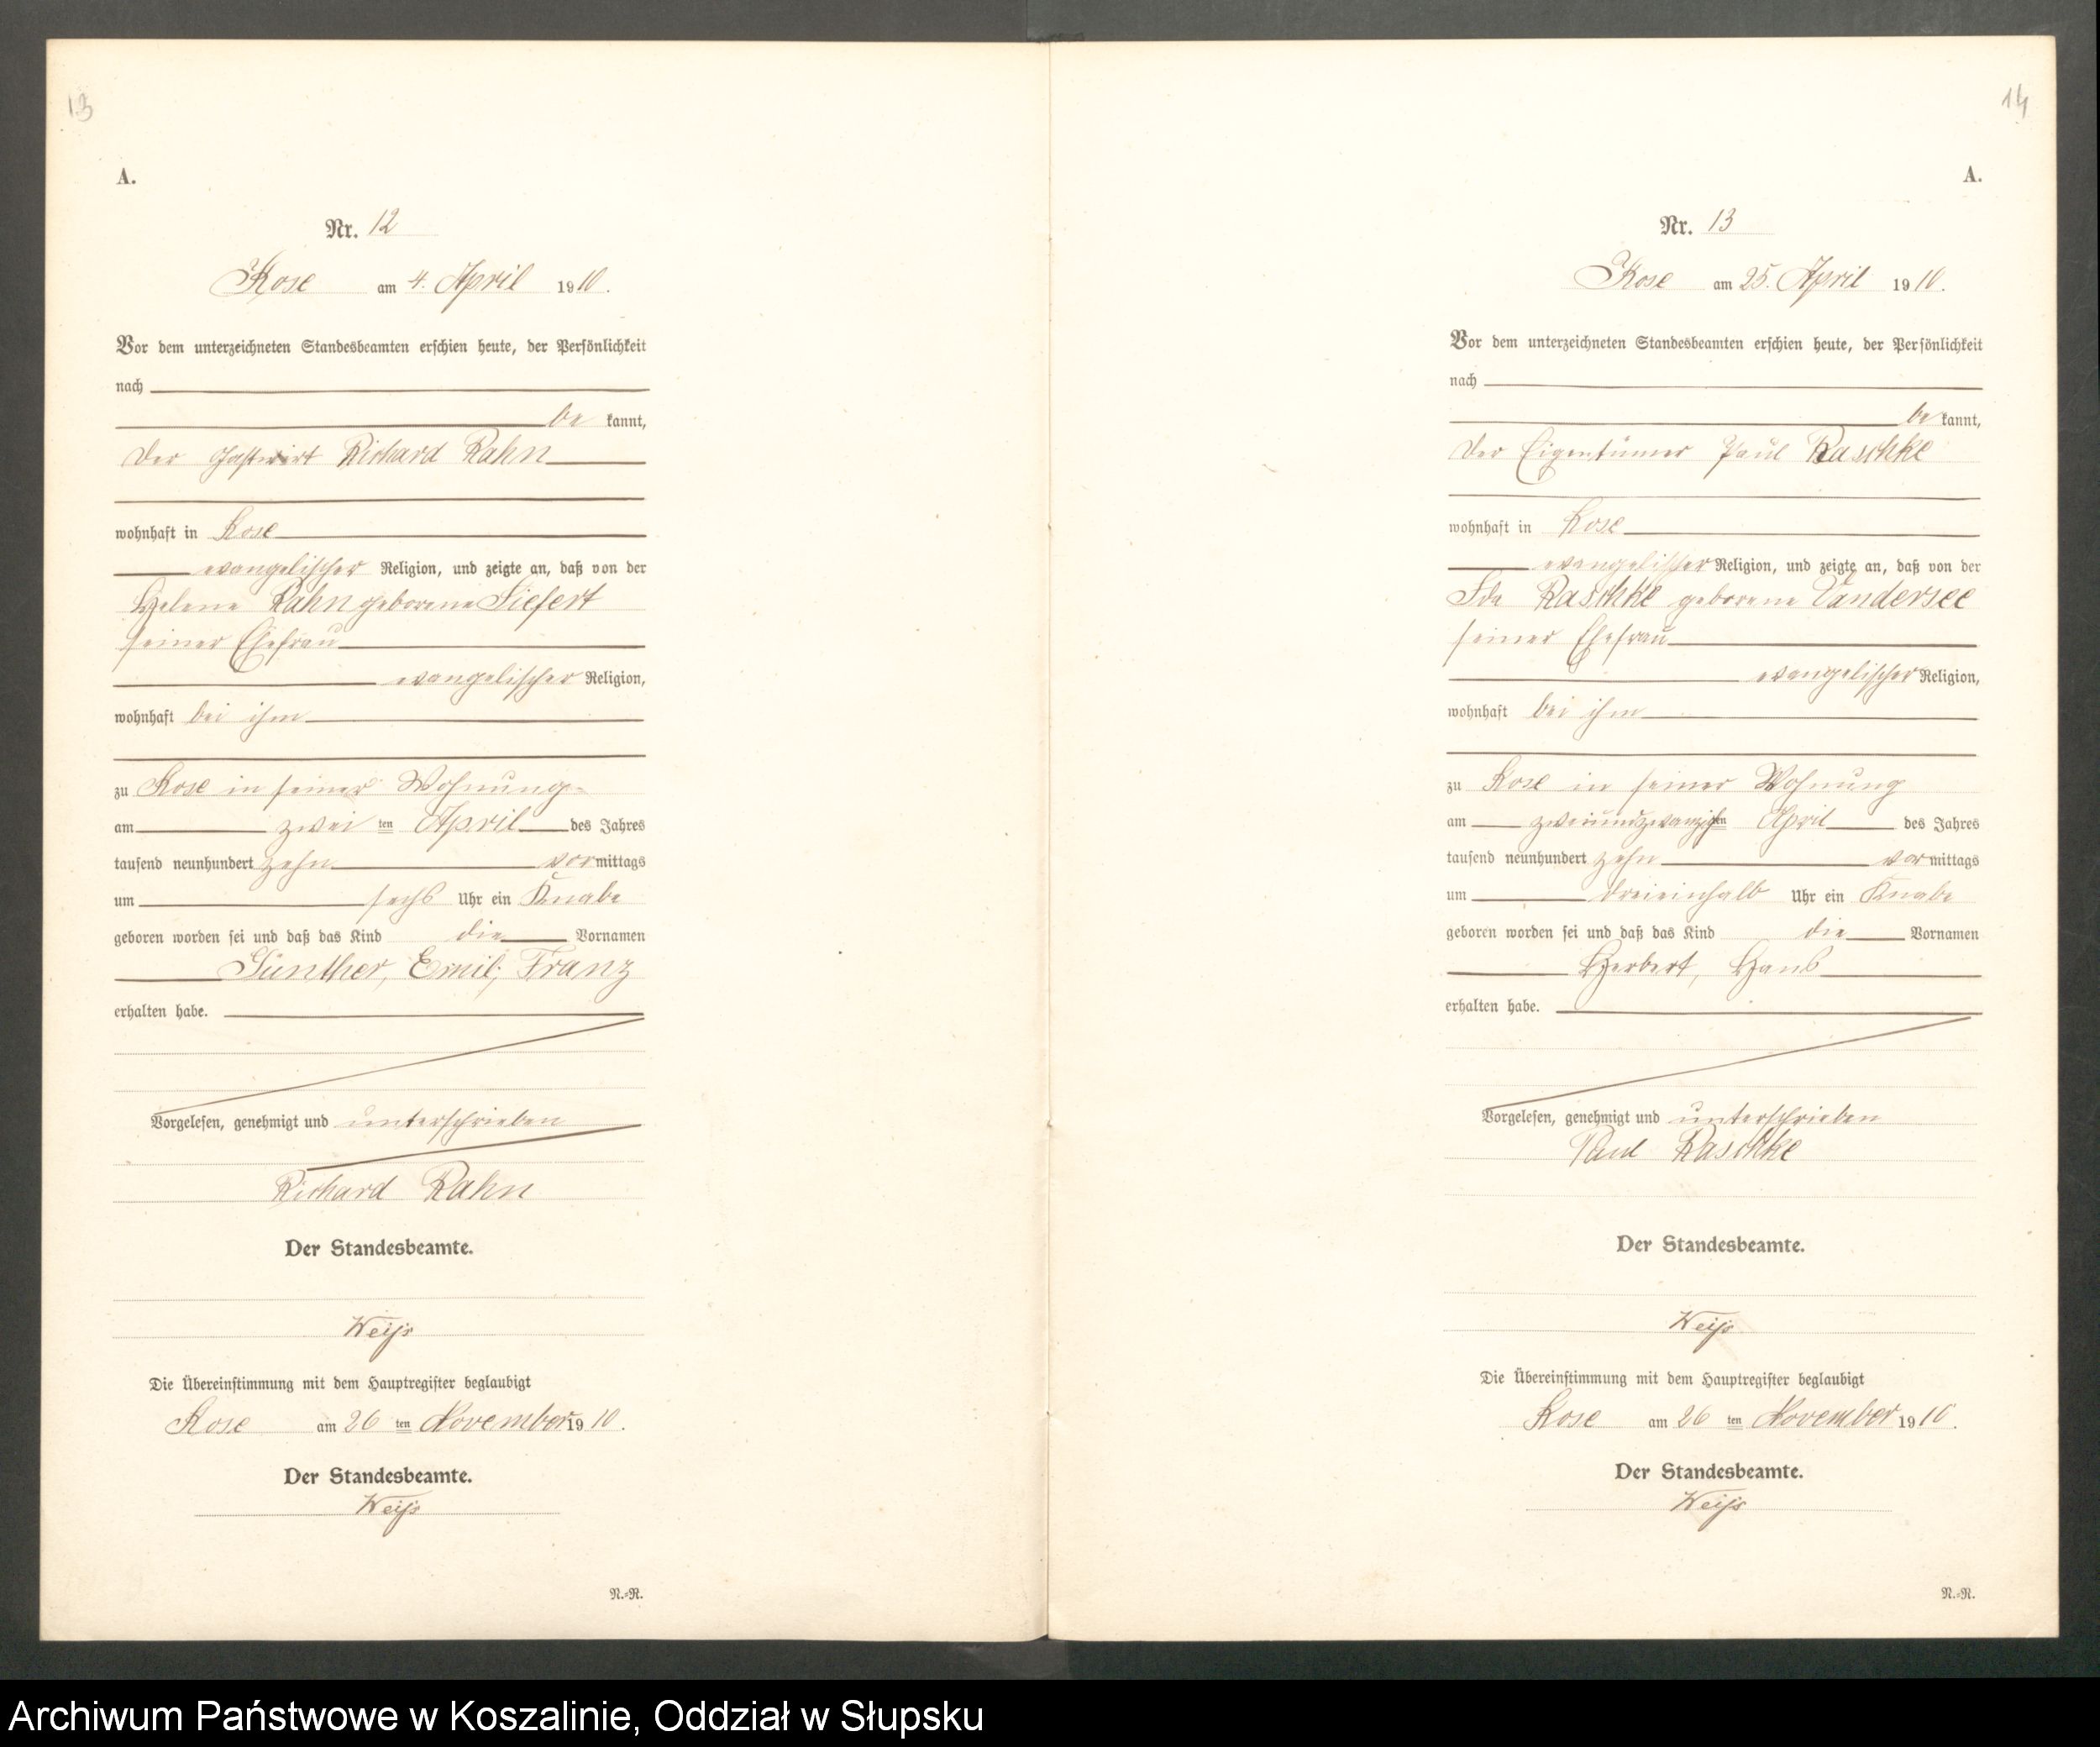 13
A.
Nr. 12
Kose am 4. April 1910.
Vor dem unterzeichneten Standesbeamten erschien heute, der Persönlichkeit
nach
be kannt,
der Gastwirt Richard Rahn
wohnhaft in Kose
evangelischer Religion, und zeigte an, daß von der
Helene Rahn geborene Siefert
seiner Ehefrau
evangelischer Religion,
wohnhaft bei ihm
zu Kose in seiner Wohnung
am zwei ten April des Jahres
tausend neunhundert zehn vormittags
um sechs Uhr ein Knabe
geboren worden sei und daß das Kind die Vornamen
Günther, Emil, Franz
erhalten habe.
Vorgelesen, genehmigt und unterschrieben
Richard Rahn
Der Standesbeamte.
Weiß
Die Übereinstimmung mit dem Hauptregister beglaubigt
Kose am 26 ten November 1910.
Der Standesbeamte.
Weiß
N.=R.
14
A.
Nr. 13
Kose am 25. April 1910.
Vor dem unterzeichneten Standesbeamten erschien heute, der Persönlichkeit
nach
be kannt,
der Eigentümer Paul Raschke
wohnhaft in Kose
evangelischer Religion, und zeigte an, daß von der
Ida Raschke geborene Vandersee
seiner Ehefrau
evangelischer Religion,
wohnhaft bei ihm
zu Kose in seiner Wohnung
am zweiundzwanzigsten April des Jahres
tausend neunhundert zehn vormittags
um dreieinhalb Uhr ein Knabe
geboren worden sei und daß das Kind die Vornamen
Herbert, Hans
erhalten habe.
Vorgelesen, genehmigt und unterschrieben
Paul Raschke
Der Standesbeamte.
Weiß
Die Übereinstimmung mit dem Hauptregister beglaubigt
Kose am 26 ten November 1910.
Der Standesbeamte.
Weiß
N.=R.
Archiwum Państwowe w Koszalinie, Oddział w Słupsku